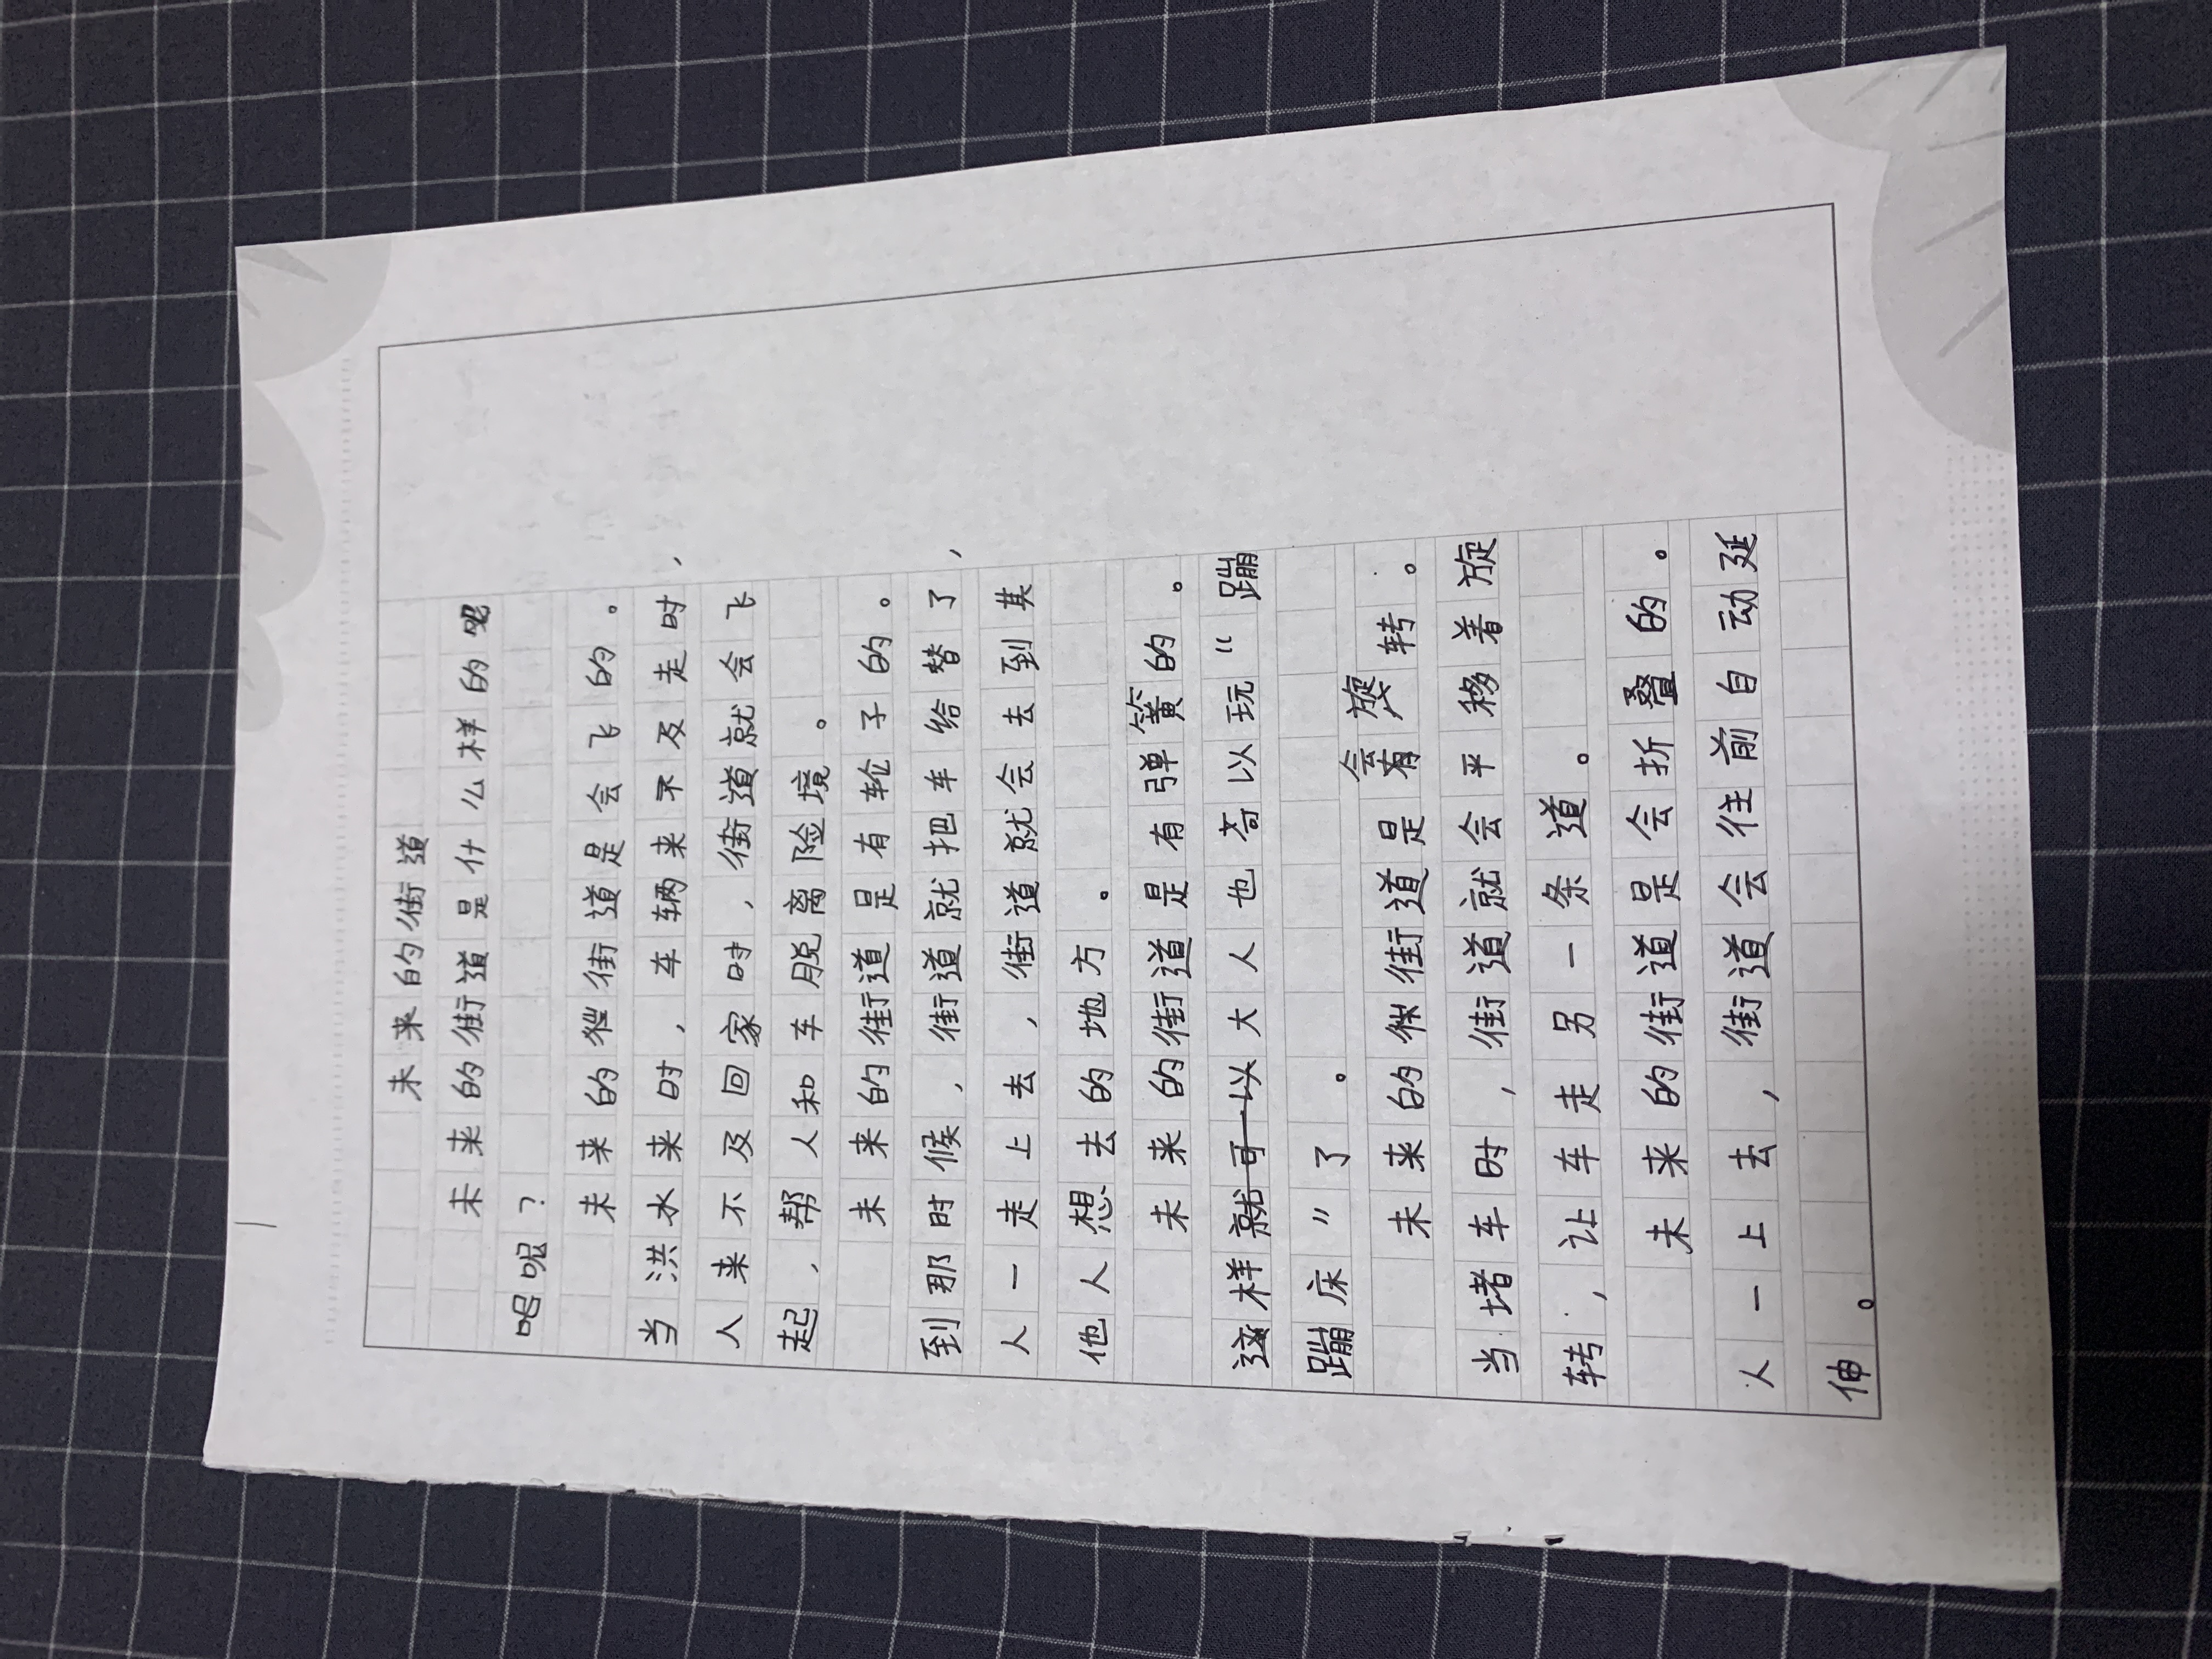 未来的街道
未来的街道是什么样的
呢？
未来的街道是会飞的。
当洪水来时，车辆来不及走时，
人来不及回家时，街道就会飞
起，帮人和车脱离险境。
未来的街道是有轮子的。
到那时候，街道就把车给替了，
人一走上去，街道就会去到其
他人想去的地方。
未来的街道是有弹簧的。
这样就可以大人也可以玩“蹦
蹦床”了。
未来的街道是会旋转。
当堵车时，街道就会平移着旋
转，让车走另一条道。
未来的街道是会折叠的。
人一上去，街道会往前自动延
伸。